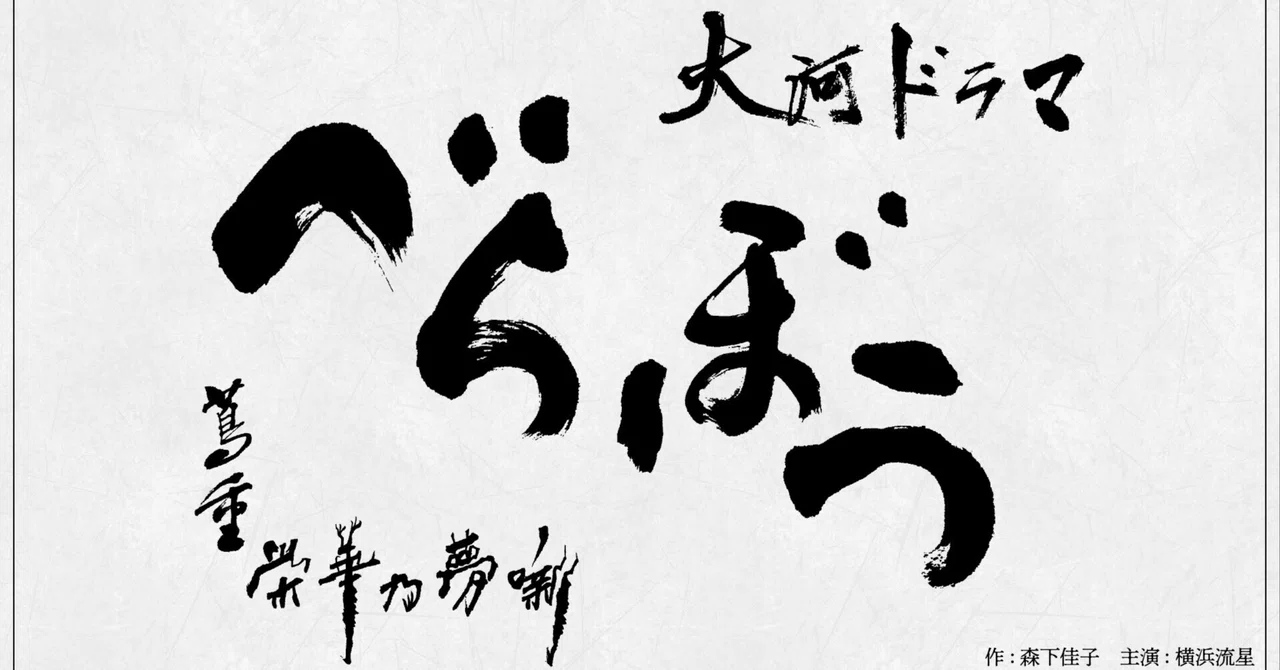 大河ドラマ
べらぼう
蔦重
栄華乃夢噺
作:森下佳子 主演:横浜流星